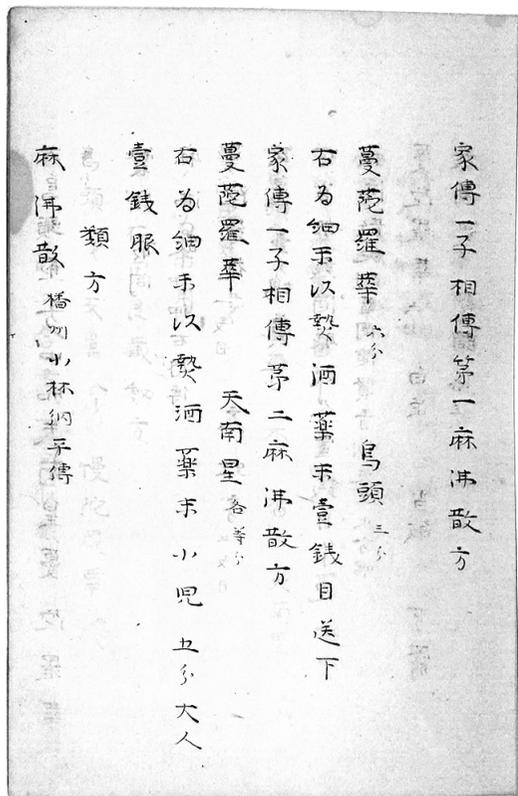 家傳一子相傳第一麻沸散方
蔓陀羅華 六分 烏頭 三分
右為細末以熱酒藥末壹錢目送下
家傳一子相傳第二麻沸散方
蔓陀羅華 天南星 各等分
右為細末以熱酒藥末小児五分大人
壹錢服
類方
麻沸散 播州小林納平傳